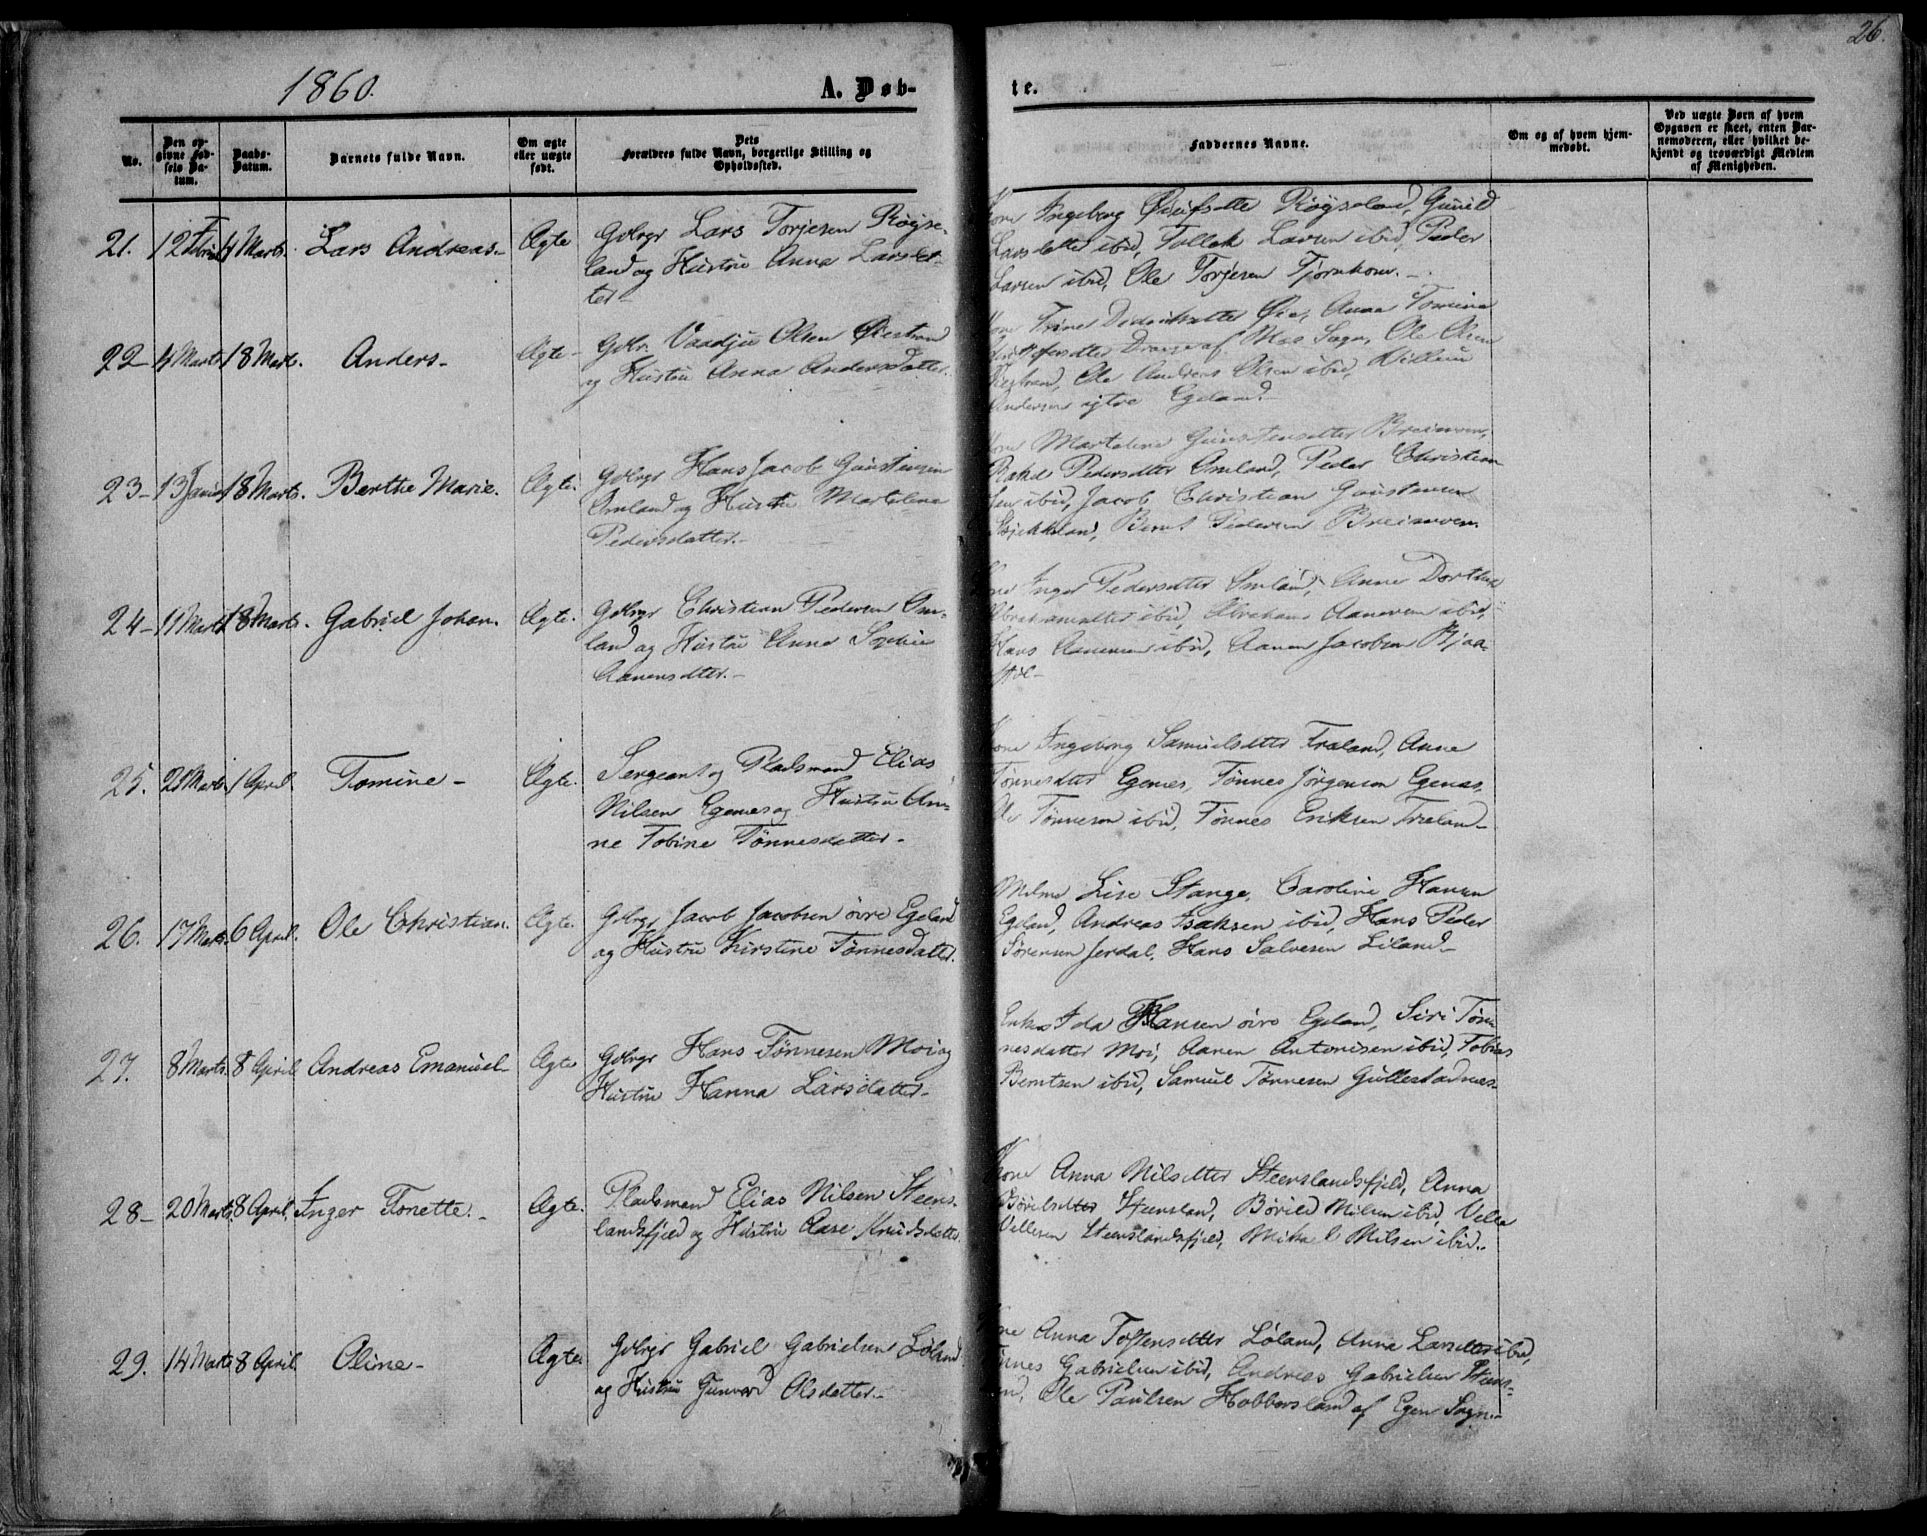 26.
1860.
A. Døb-
te.
No.
Den opgivne Fødsels Datum.
Daabs-Datum.
Barnets fulde Navn.
Om ægte eller uægte født.
Dets Forældres fulde Navn, borgerlige Stilling og Opholdssted.
Faddernes Navne.
Om og af hvem hjemmedøbt.
Ved uægte Børn af hvem Opgaven er skeet, enten Barnemoderen, eller hvilket bekjendt og troværdigt Medlem af Menigheden.
21. 12 Febr 4 Marts. Lars Andreas. Ægte
Gdbrgr Lars Torjesen Røyse-
land og Hustru Anna Larsdat-
ter
Kone Ingeborg Røyseland, Gunild
Larsdatter ibid, Tollak Larsen ibid, Peder
Larsen ibid, Ole Torjesen Tjørnhom.
22 4 Marts 18 Marts. Anders. Ægte
Gdbr. Vaadju Olsen Øiestrand
og Hustru Anna Andersdatter.
Kone Trine Didriksdatter Øie, Anna Tomine
Drange af Næs Sogn, Ole Olsen
Øiestrand, Ole Andreas Olsen ibid, Villum
Andersen ytre Egeland.
23 13 Januar 18 Marts. Berthe Marie. Ægte.
Gdbrgr Hans Jacob Gunstensen
Omland og Hustru Martelene
Pedersdatter.
Kone Martelene Gunstensdatter Breimoen,
Rakel Pedersdtter Omland, Peder Christian-
sen ibid, Jacob Christian Gunstensen
Stjekkeland, Bernt Pedersen Breimoen.
24 11 Marts 18 Marts. Gabriel Johan. Ægte.
Gdbrgr Christian Pedersen Om-
land og Hustru Anna Sophie
Aanensdtter.
Kone Inger Pedersdtter Omland, Anne Dorthea
Abrahamsdtter ibid, Abraham Aanensen ibid,
Hans Aanensen ibid, Aanen Jacobsen Bjaa-
støl
25. 21 Marts. 1 April. Tomine Ægte.
Sergeant og Pladsmand Elias
Nilsen Egenes og Hustru An-
ne Tobine Tønnesdatter.
Kone Ingeborg Samuelsdtter Træland, Anne
Tønnesdtter Egenes, Tønnes Jørgensen Egenes,
Ole Tønnesen ibid, Tønnes Eriksen Træland
26. 17 Marts. 6 April. Ole Christian. Ægte.
Gdbrgr Jacob Jacobsen øvre Egeland
og Hustru Kirstine Tønnesdatter.
Lise Stange, Caroline Hansen
Egeland, Andreas Isaksen ibid, Hans Peder
Sørensen Jerdal, Hans Salvesen Liland
27. 8 Marts. 8 April. Andreas Emanuel Ægte
Gdbrgr Hans Tønnesen Moi og
Hustru Hanna Larsdatter
Enke Ida Hansen øvre Egeland, Siri Tøn-
nesdatter Moi, Aanen Antonisen ibid, Tobias
Berntsen ibid, Samuel Tønnesen Gullestadnes.
28 20 Marts. 8 April. Inger Tonette. Ægte.
Pladsmand Elias Nilsen Steens-
landsfjeld og Hustru Aase Knudsdatter.
Kone Anna Nilsdtter Steenslandsfjeld, Anna
Børildsdtter Steensland, Børild Nilsen ibid, Velle
Vellesen Steenslandsfjeld, Mikal Nilsen ibid.
29. 14 Marts 8 April. Oline Ægte.
Gdbrgr Gabriel Gabrielsen Løland
og Hustru Gunvor Olsdatter.
Kone Anna Torstensdtter Løland, Anna Larsdtter ibid,
Tønnes Gabrielsen ibid, Andreas Gabrielsen Steens-
land, Ole Paulsen Hobbesland af Egen Sogn.